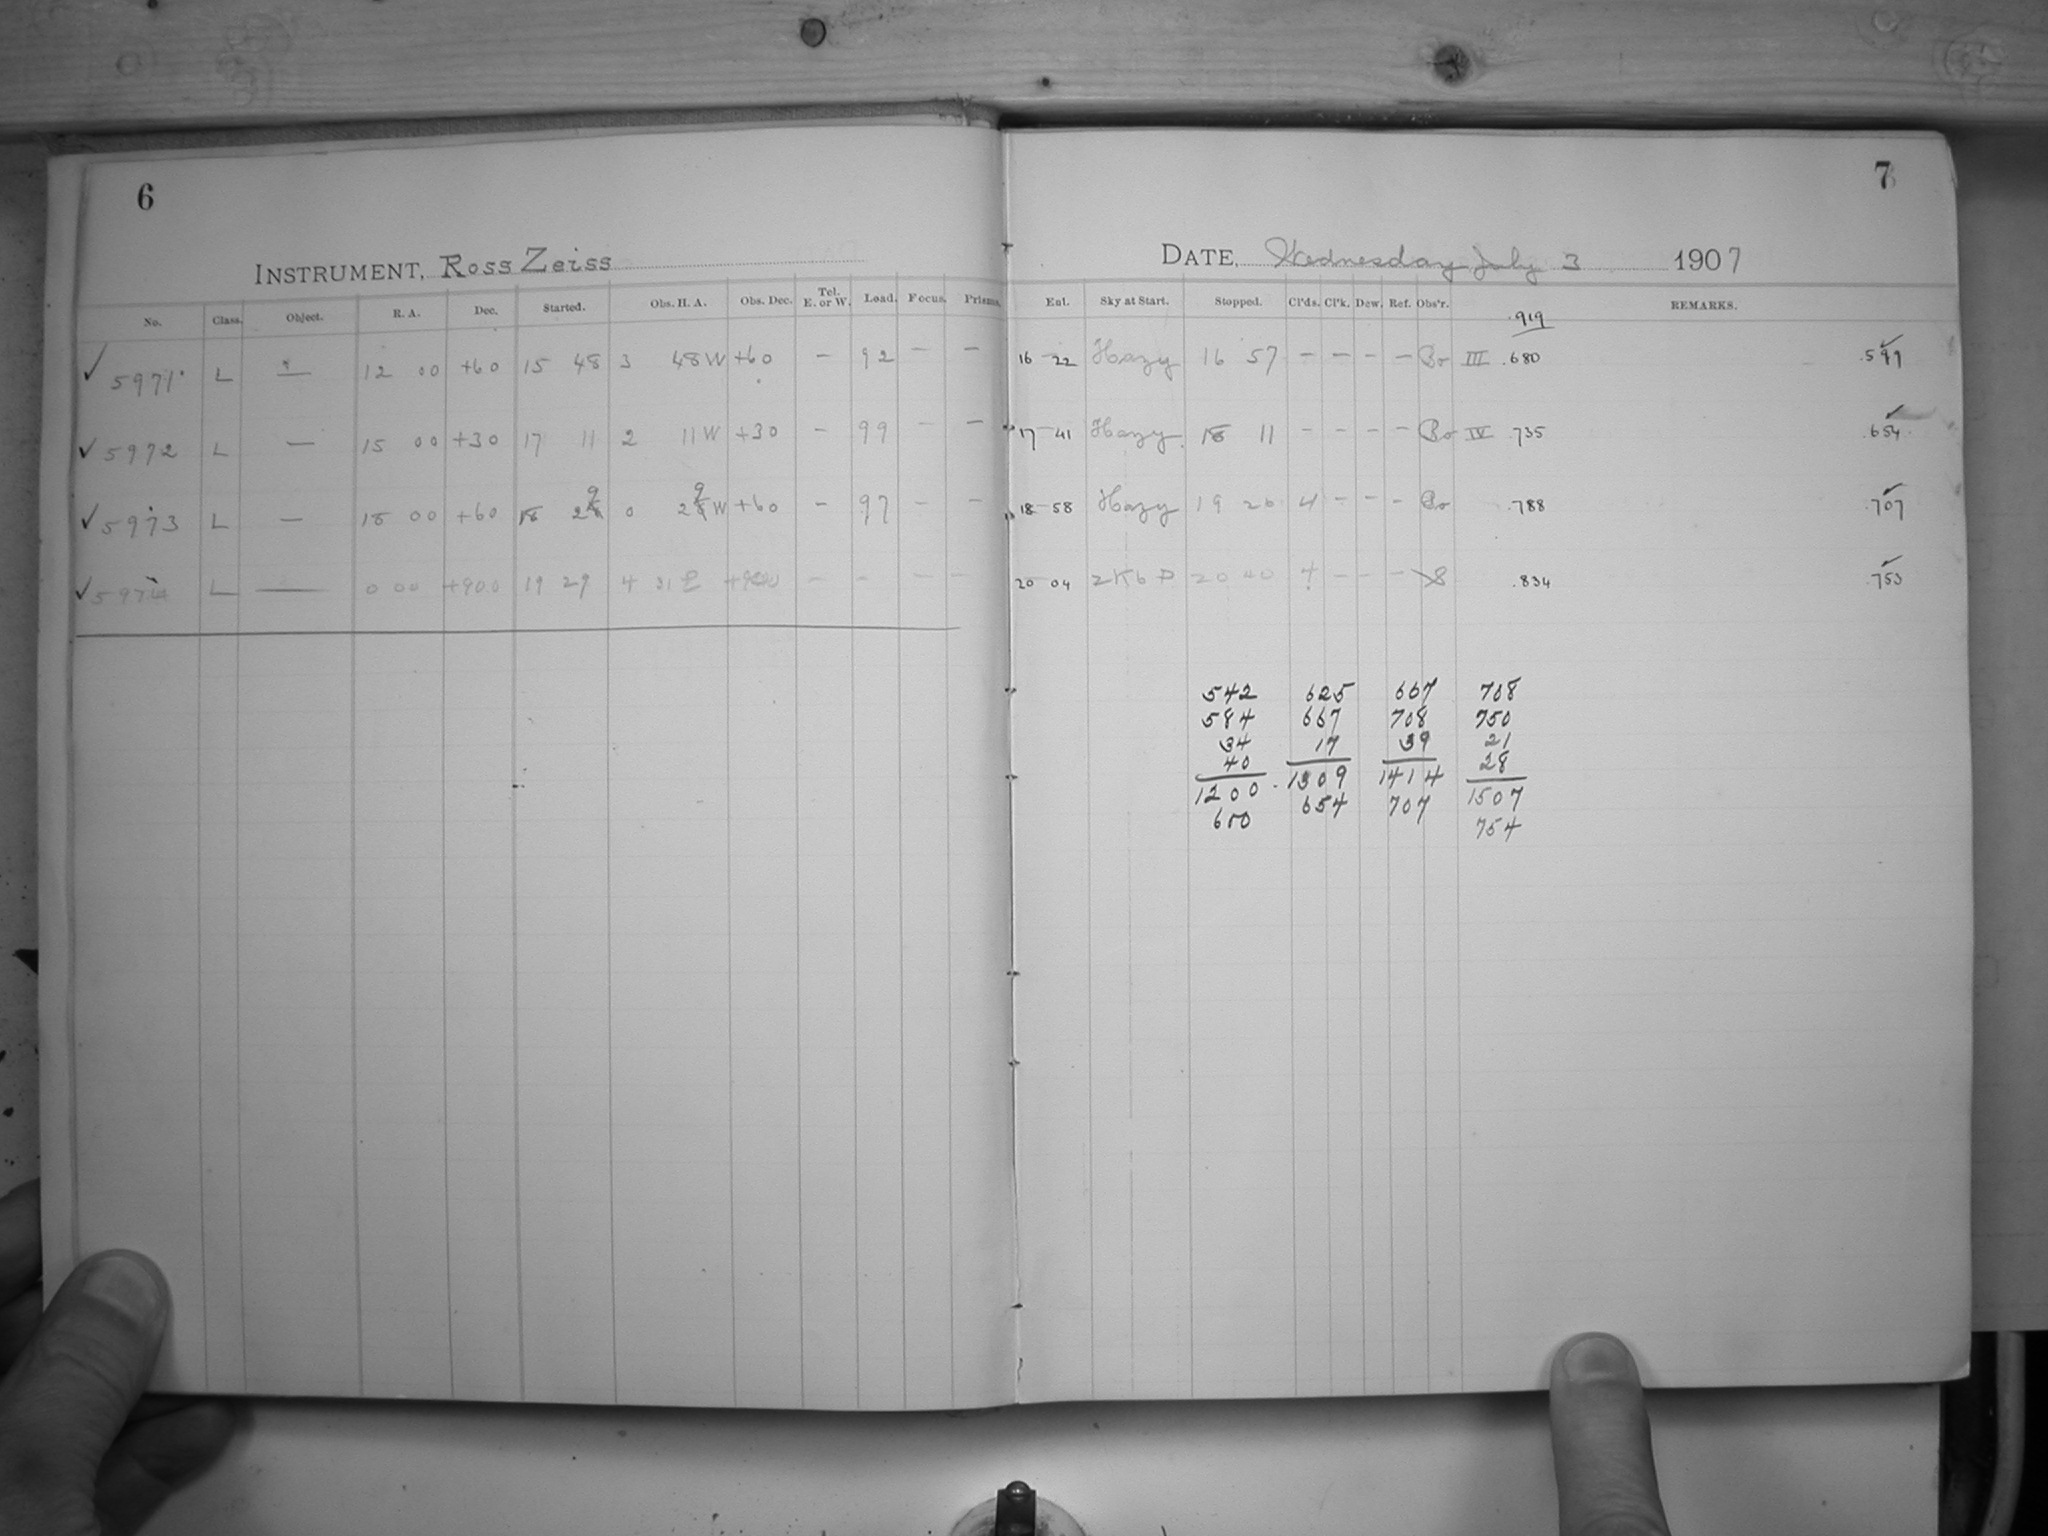 6
INSTRUMENT, Ross Zeiss
No. Class. Object. R. A. Dec. Started. Obs. H. A. Obs. Dec. Tel. E. or W. Load. Focus. Prisms.
✓ 5971 L — 12 00 +60 15 48 3 48W +60 — 92 — —
✓ 5972 L — 15 00 +30 17 11 2 11W +30 — 99 — —
✓ 5973 L — 18 00 +60 18 29 0 29 W +60 — 97 — —
✓ 5974 L — 0 00 +90 0 19 29 4 31 E +90 — — — —
7
DATE, Wednesday July 3 1907
Ent. Sky at Start. Stopped. Cl'ds. Cl'k. Dew. Ref. Obs'r. REMARKS.
.919
16 22 Hazy 16 57 — — — — Bo III .680 .599 ✓
17 41 Hazy 18 11 — — — — Bo IV .735 .654 ✓
18 58 Hazy 19 26 4 — — — Bo .788 .707 ✓
20 04 20 40 — — — .834 .753 ✓
542 625 667 708
584 667 708 750
34 17 39 21
40 28
1200 1309 1414 1507
600 654 707 754